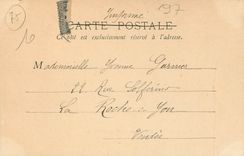 75
Imprimé
97
6
CARTE POSTALE
Ce côté est exclusivement réservé à l'adresse.
Mademoiselle Yvonne Garnier
22 Rue Lafférière
La Roche-s-Yon
Vendée